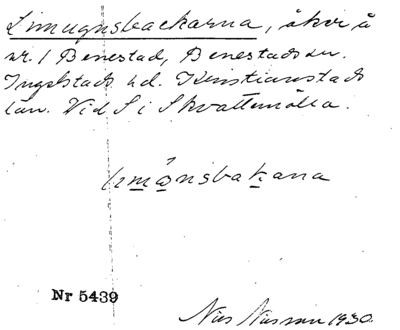 Limugnsbackarna, åker å
nr. 1 Benestad, Benestads sn.
Ingelstads hd. Kristianstads
län. Vid S i Skvattemölla.
limånsbakana
Nr 5439
Nils Nilsson 1930.